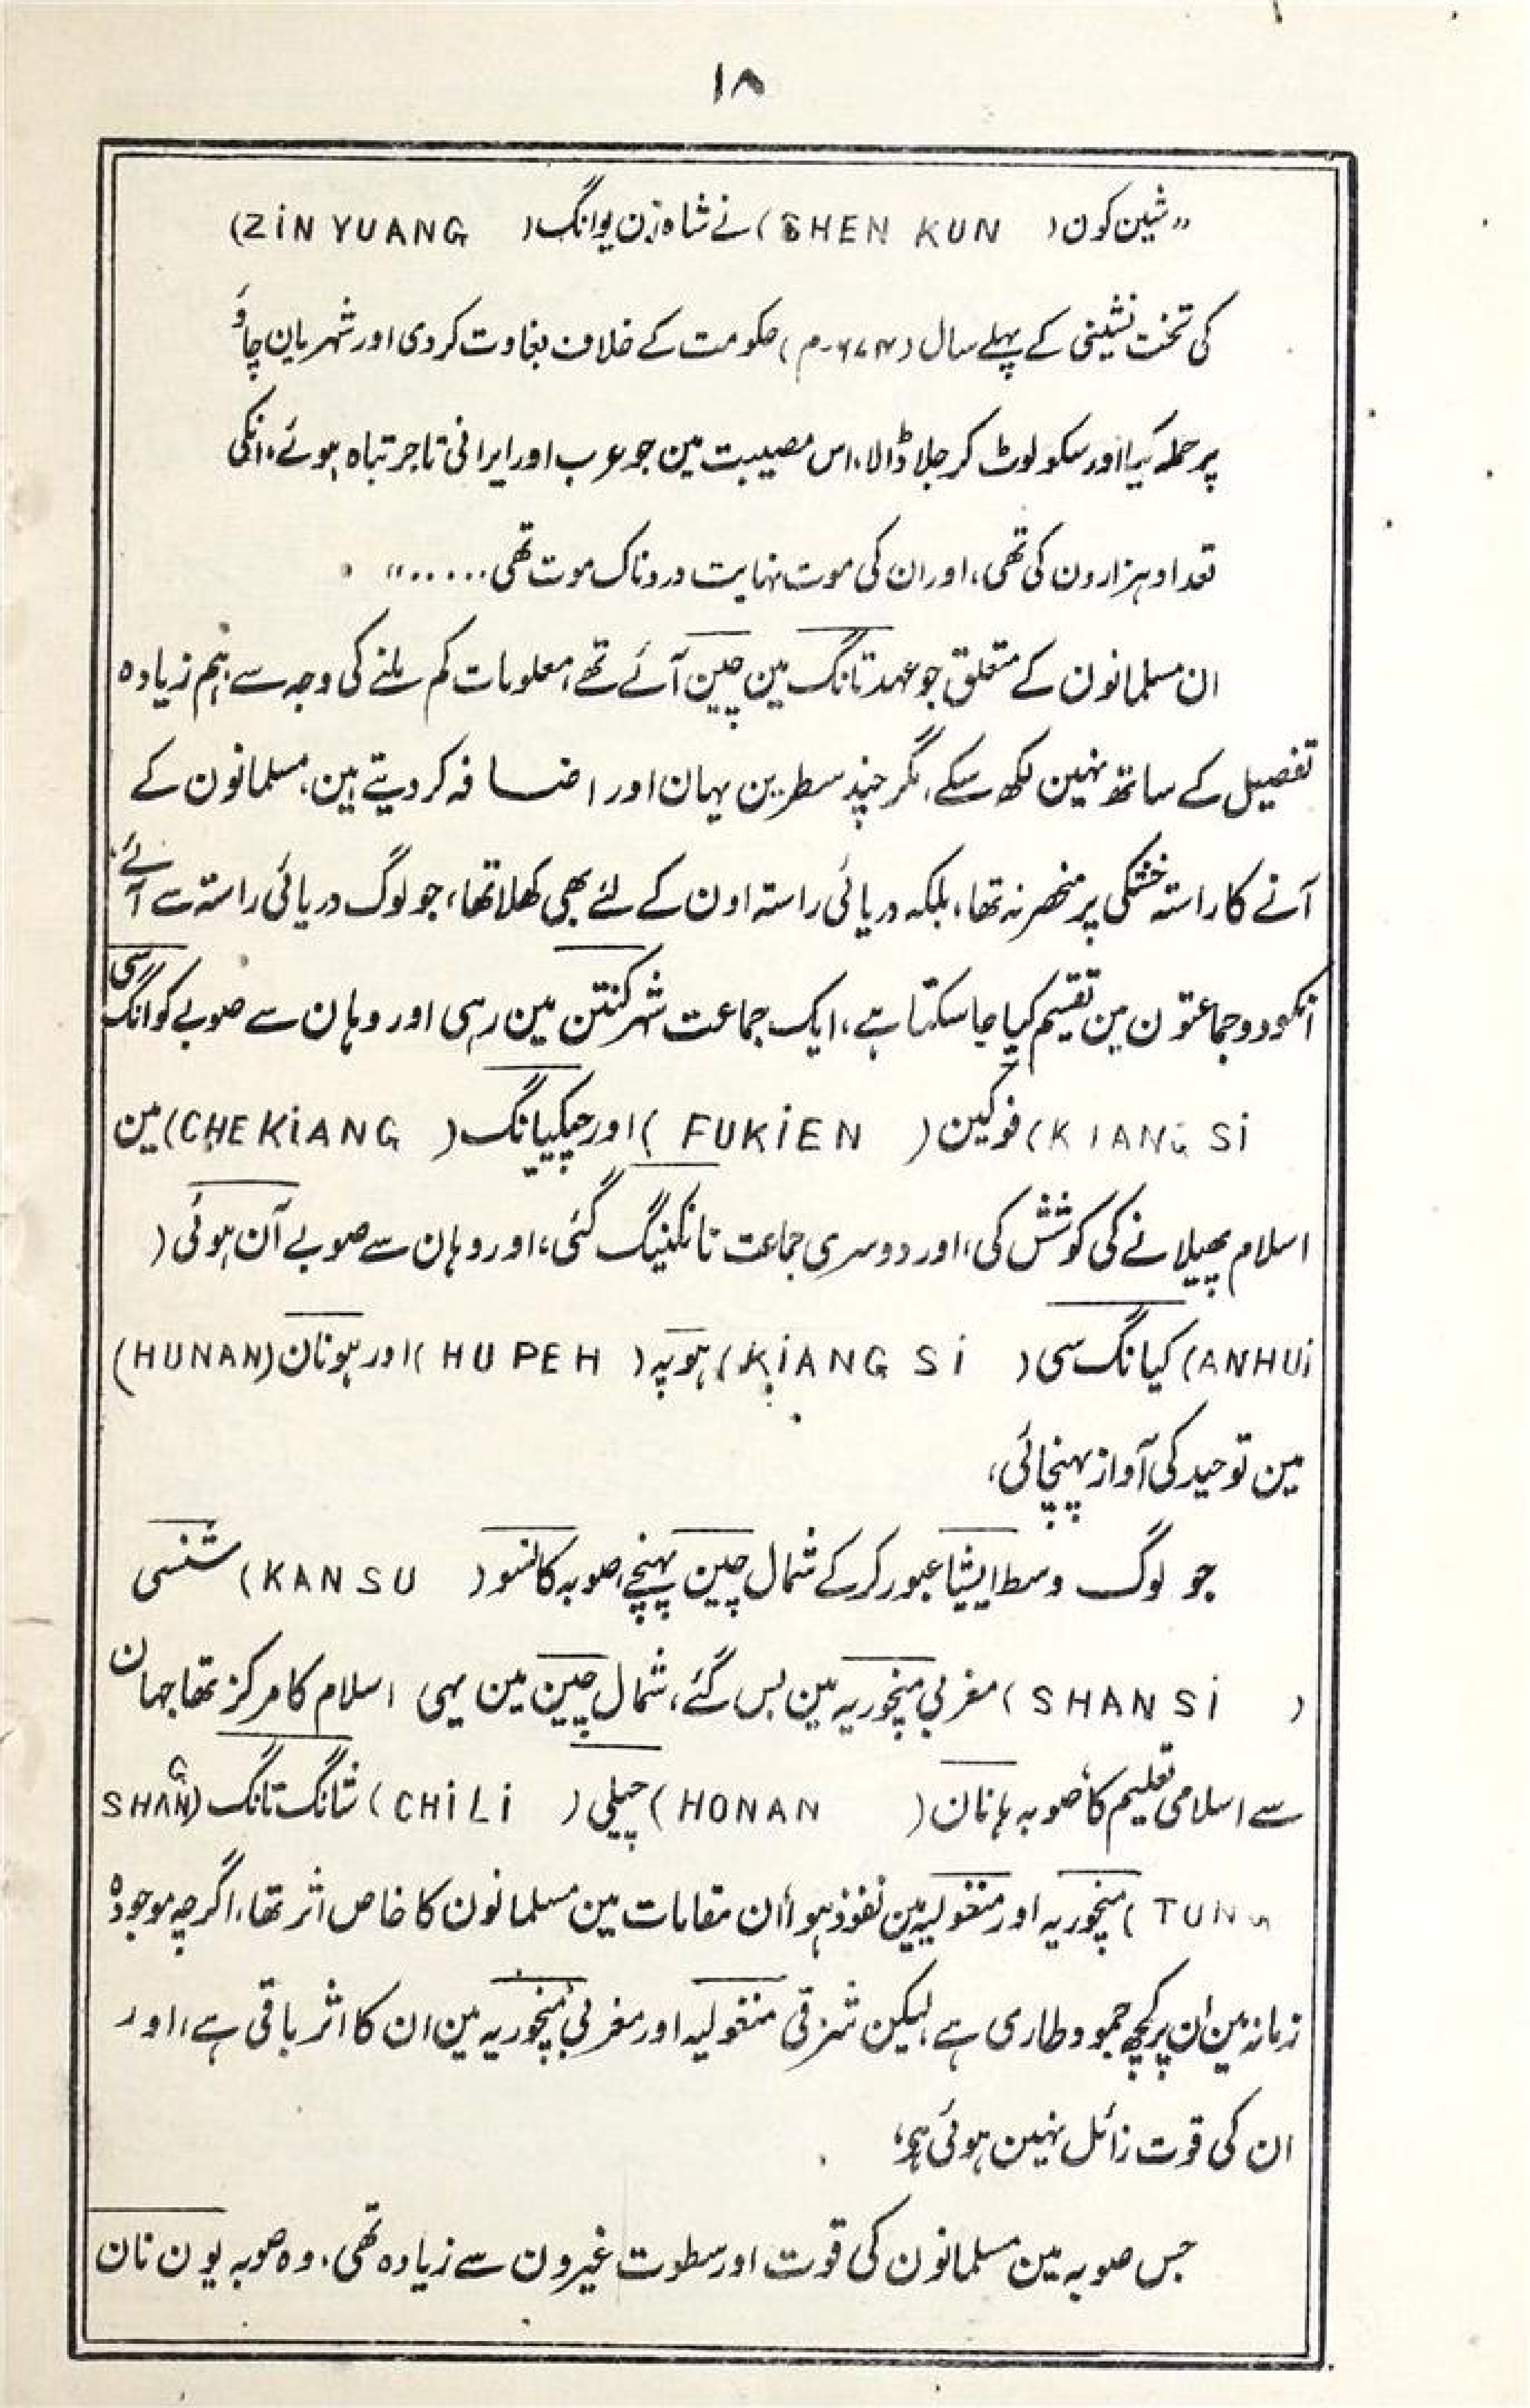 ۱۸
”شین کون (SHEN KUN) نے شاہ زن یوانگ (ZiN YUANG)
کی تخت نشینی کے پہلے سال (۶۷۴ء۔م) حکومت کے خلاف بغاوت کردی اور شہریان چاؤ
پر حملہ کیا اور سکو لوٹ کر جلا ڈالا، اس مصیبت مین جو عرب اور ایرانی تاجر تباہ ہوئے، انکی
تعداد ہزارون کی تھی، اور ان کی موت نہایت دردناک موت تھی......“
ان مسلمانون کے متعلق جو عہد تانگ مین چین آئے تھے، معلومات کم ملنے کی وجہ سے ہم زیادہ
تفصیل کے ساتھ نہین لکھ سکے، مگر چند سطرین یہان اور اضافہ کر دیتے ہین، مسلمانون کے
آنے کا راستہ خشکی پر منحصر نہ تھا، بلکہ دریائی راستہ اون کے لئے بھی کھلا تھا، جو لوگ دریائی راستہ سے آئے،
انکو دو جماعتون مین تقسیم کیا جا سکتا ہے، ایک جماعت شہر کنتن مین رہی اور وہان سے صوبے کوانگ سی
KIANG Si) فوکین (FUKiEN) اور چیکیانگ (CHEKiANG) مین
اسلام پھیلانے کی کوشش کی، اور دوسری جماعت نانکنیگ گئی، اور وہان سے صوبے آن ہوئی (
ANHUi) کیانگ سی (KiANG Si) ہوپہ (HUPEH) اور ہونان (HUNAN)
مین توحید کی آواز پہنچائی،
جو لوگ وسط ایشیا عبور کرکے شمال چین پہنچے، صوبہ کانسو (KANSU) شنسی
(SHANSi) مغربی منچوریہ مین بس گئے، شمال چین مین یہی اسلام کا مرکز تھا جہان
سے اسلامی تعلیم کا صوبہ ہانان (HONAN) چیلی (CHiLi) شانگ تانگ (SHANG
TUNG) منچوریہ اور منغولیہ مین نفوذ ہوا، ان مقامات مین مسلمانون کا خاص اثر تھا، اگرچہ موجودہ
زمانہ مین ان پر کچھ جمود طاری ہے، لیکن شرقی منغولیہ اور مغربی منچوریہ مین ان کا اثر باقی ہے، اور
ان کی قوت زائل نہین ہوئی ہے،
جس صوبہ مین مسلمانون کی قوت اور سطوت غیرون سے زیادہ تھی، وہ صوبہ یون نان